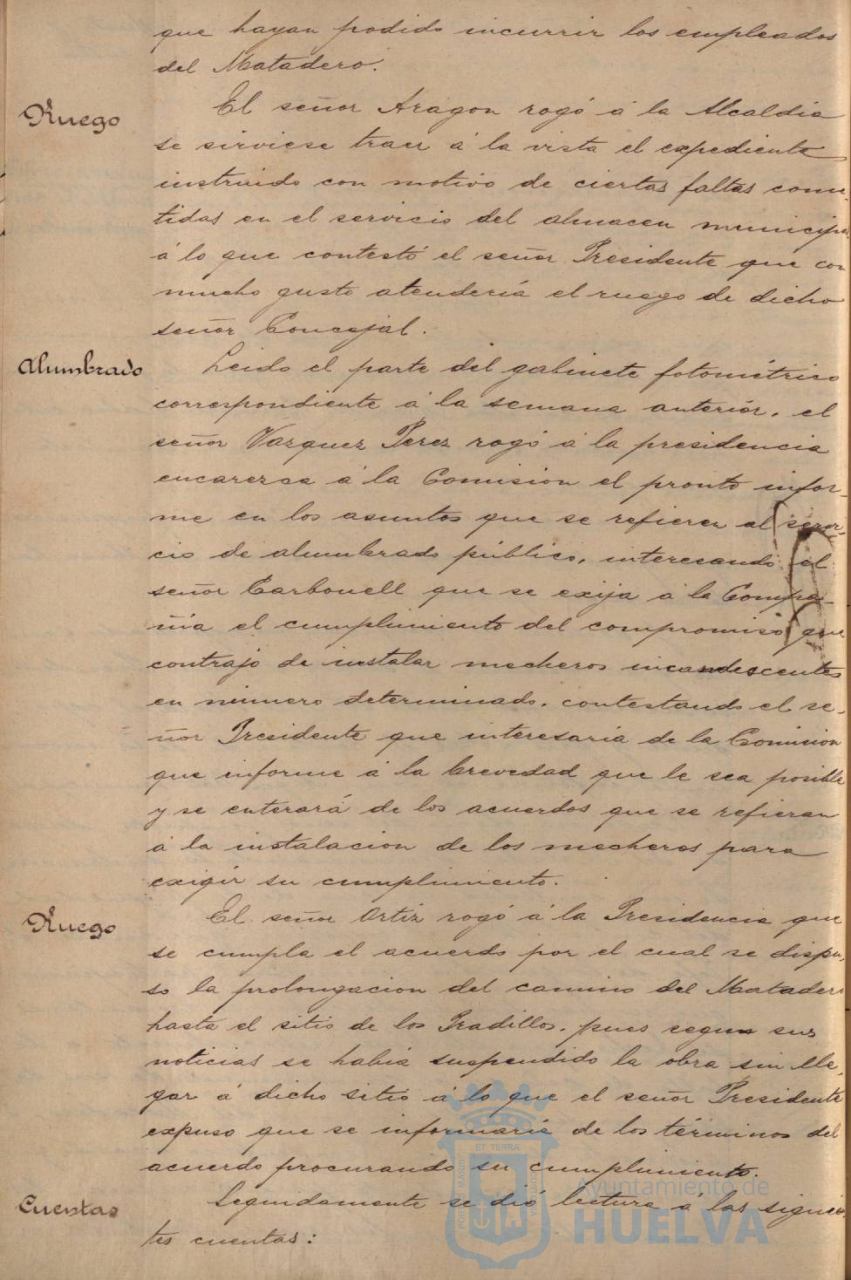 que hayan podido incurrir los empleados
del Matadero.
Ruego
El señor Aragon rogó á la Alcaldia
se sirviese traer á la vista el expediente
instruido con motivo de ciertas faltas come-
tidas en el servicio del almacen municipal
á lo que contestó el señor Presidente que con
mucho gusto atendería el ruego de dicho
señor Concejal.
Alumbrado
Leido el parte del gabinete fotométrico
correspondiente á la semana anterior, el
señor Vazquez Perez rogó á la presidencia
encarezca á la Comision el pronto infor-
me en los asuntos que se refieren al servi-
cio de alumbrado público, interesando el
señor Carbonell que se exija á la Compa-
ñia el cumplimiento del compromiso que
contrajo de instalar mecheros incandescentes
en número determinado, contestando el se-
ñor Presidente que interesaria de la Comision
que informe á la brevedad que le sea posible
y se enterará de los acuerdos que se refieran
á la instalacion de los mecheros para
exigir su cumplimiento.
Ruego
El señor Ortiz rogó á la Presidencia que
se cumpla el acuerdo por el cual se dispu-
so la prolongacion del camino del Matadero
hasta el sitio de los Pradillos, pues segun sus
noticias se habia suspendido la obra sin lle-
gar á dicho sitio á lo que el señor Presidente
expuso que se informaria de los términos del
acuerdo procurando su cumplimiento.
Cuentas
Seguidamente se dió lectura á las siguien-
tes cuentas:
Ayuntamiento de
HUELVA